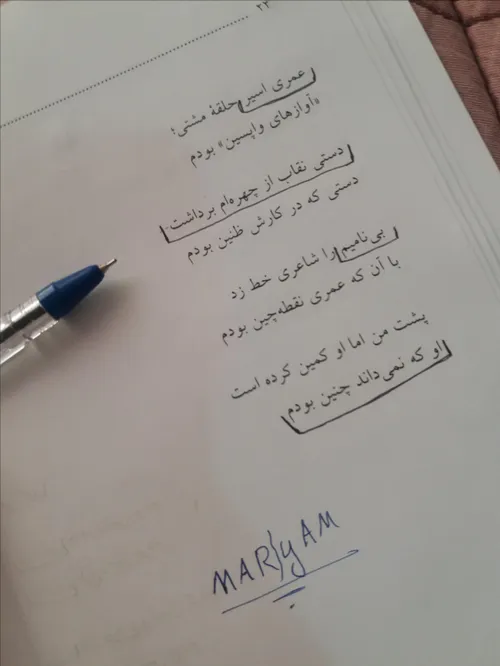 ۲۳
عمری اسیر حلقهٔ مشتی؛
«آوازهای واپسین» بودم
دستی نقاب از چهره‌ام برداشت.
دستی که در کارش ظنین بودم
بی‌نامیم را شاعری خط زد
با آن که عمری نقطه‌چین بودم
پشت من اما او کمین کرده است
او که نمی‌داند چنین بودم
MARyAM